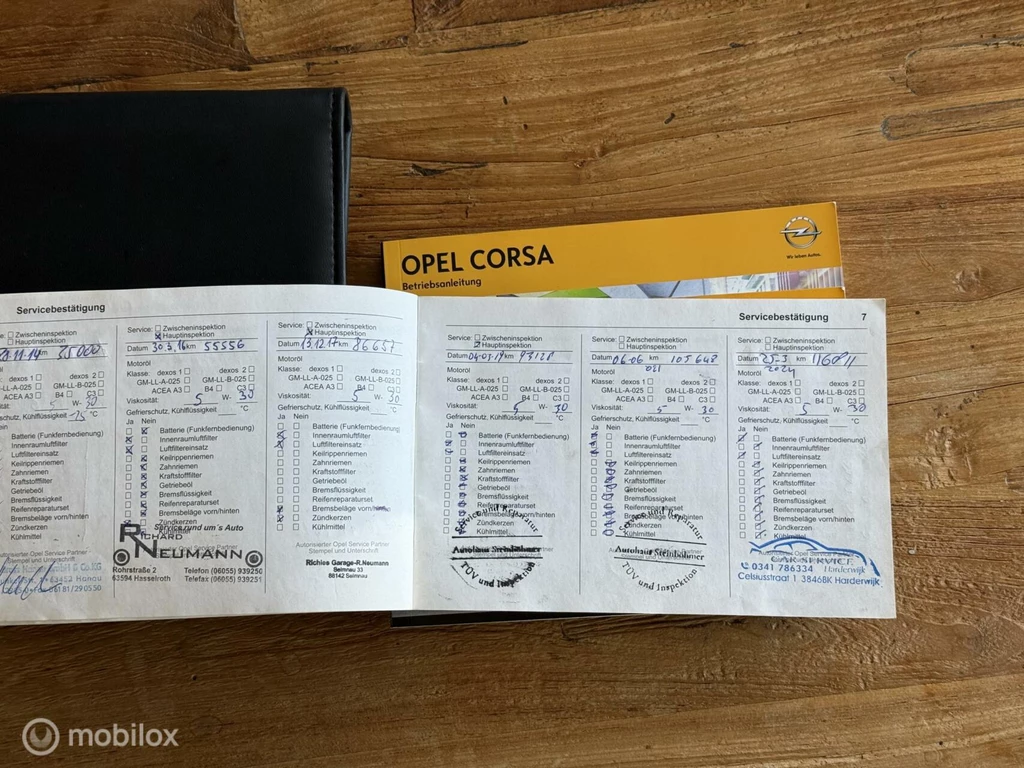 OPEL CORSA
Betriebsanleitung
Wir leben Autos.
Servicebestätigung
Zwischeninspektion
Hauptinspektion
km 35000
dexos 1 dexos 2
GM-LL-A-025 GM-LL-B-025
ACEA A3 B4 C3
W- 30
Gefrierschutz, Kühlflüssigkeit °C
Ja Nein
Batterie (Funkfernbedienung)
Innenraumluftfilter
Luftfiltereinsatz
Keilrippenriemen
Zahnriemen
Kraftstofffilter
Getriebeöl
Bremsflüssigkeit
Reifenreparaturset
Bremsbeläge vorn/hinten
Zündkerzen
Kühlmittel
Autorisierter Opel Service Partner
Stempel und Unterschrift
63452 Hanau
06181/290550
Service: Zwischeninspektion
Hauptinspektion
Datum 30.3.16 km 55556
Motoröl
Klasse: dexos 1 dexos 2
GM-LL-A-025 GM-LL-B-025
ACEA A3 B4 C3
Viskosität: 5 W- 30
Gefrierschutz, Kühlflüssigkeit °C
Ja Nein
Batterie (Funkfernbedienung)
Innenraumluftfilter
Luftfiltereinsatz
Keilrippenriemen
Zahnriemen
Kraftstofffilter
Getriebeöl
Bremsflüssigkeit
Reifenreparaturset
Bremsbeläge vorn/hinten
Service rund um's Auto
RICHARD
NEUMANN
Rohrstraße 2
63594 Hasselroth
Telefon (06055) 939250
Telefax (06055) 939251
Service: Zwischeninspektion
Hauptinspektion
Datum 13.12.17 km 86657
Motoröl
Klasse: dexos 1 dexos 2
GM-LL-A-025 GM-LL-B-025
ACEA A3 B4 C3
Viskosität: 5 W- 30
Gefrierschutz, Kühlflüssigkeit °C
Ja Nein
Batterie (Funkfernbedienung)
Innenraumluftfilter
Luftfiltereinsatz
Keilrippenriemen
Zahnriemen
Kraftstofffilter
Getriebeöl
Bremsflüssigkeit
Reifenreparaturset
Bremsbeläge vorn/hinten
Zündkerzen
Kühlmittel
Autorisierter Opel Service Partner
Stempel und Unterschrift
Richies Garage-R.Neumann
Servicebestätigung 7
Service: Zwischeninspektion
Hauptinspektion
Datum 04.03.19 km 93128
Motoröl
Klasse: dexos 1 dexos 2
GM-LL-A-025 GM-LL-B-025
ACEA A3 B4 C3
Viskosität: 5 W- 30
Gefrierschutz, Kühlflüssigkeit °C
Ja Nein
Batterie (Funkfernbedienung)
Innenraumluftfilter
Luftfiltereinsatz
Keilrippenriemen
Zahnriemen
Kraftstofffilter
Getriebeöl
Bremsflüssigkeit
Reifenreparaturset
Bremsbeläge vorn/hinten
Zündkerzen
Kühlmittel
Service und Reparatur
Autohaus Steinhäuser
TÜV und Inspektion
Service: Zwischeninspektion
Hauptinspektion
Datum 06.06 km 105648
Motoröl 021
Klasse: dexos 1 dexos 2
GM-LL-A-025 GM-LL-B-025
ACEA A3 B4 C3
Viskosität: 5 W- 30
Gefrierschutz, Kühlflüssigkeit °C
Ja Nein
Batterie (Funkfernbedienung)
Innenraumluftfilter
Luftfiltereinsatz
Keilrippenriemen
Zahnriemen
Kraftstofffilter
Getriebeöl
Bremsflüssigkeit
Reifenreparaturset
Bremsbeläge vorn/hinten
Zündkerzen
Kühlmittel
Service und Reparatur
Autohaus Steinhäuser
TÜV und Inspektion
Service: Zwischeninspektion
Hauptinspektion
Datum 25-3 km 116811
Motoröl 2024
Klasse: dexos 1 dexos 2
GM-LL-A-025 GM-LL-B-025
ACEA A3 B4 C3
Viskosität: 5 W- 30
Gefrierschutz, Kühlflüssigkeit °C
Ja Nein
Batterie (Funkfernbedienung)
Innenraumluftfilter
Luftfiltereinsatz
Keilrippenriemen
Zahnriemen
Kraftstofffilter
Getriebeöl
Bremsflüssigkeit
Reifenreparaturset
Bremsbeläge vorn/hinten
Zündkerzen
Kühlmittel
CAR SERVICE
0341 786334 Harderwijk
Celsiusstraat 1 3846BK Harderwijk
mobilox